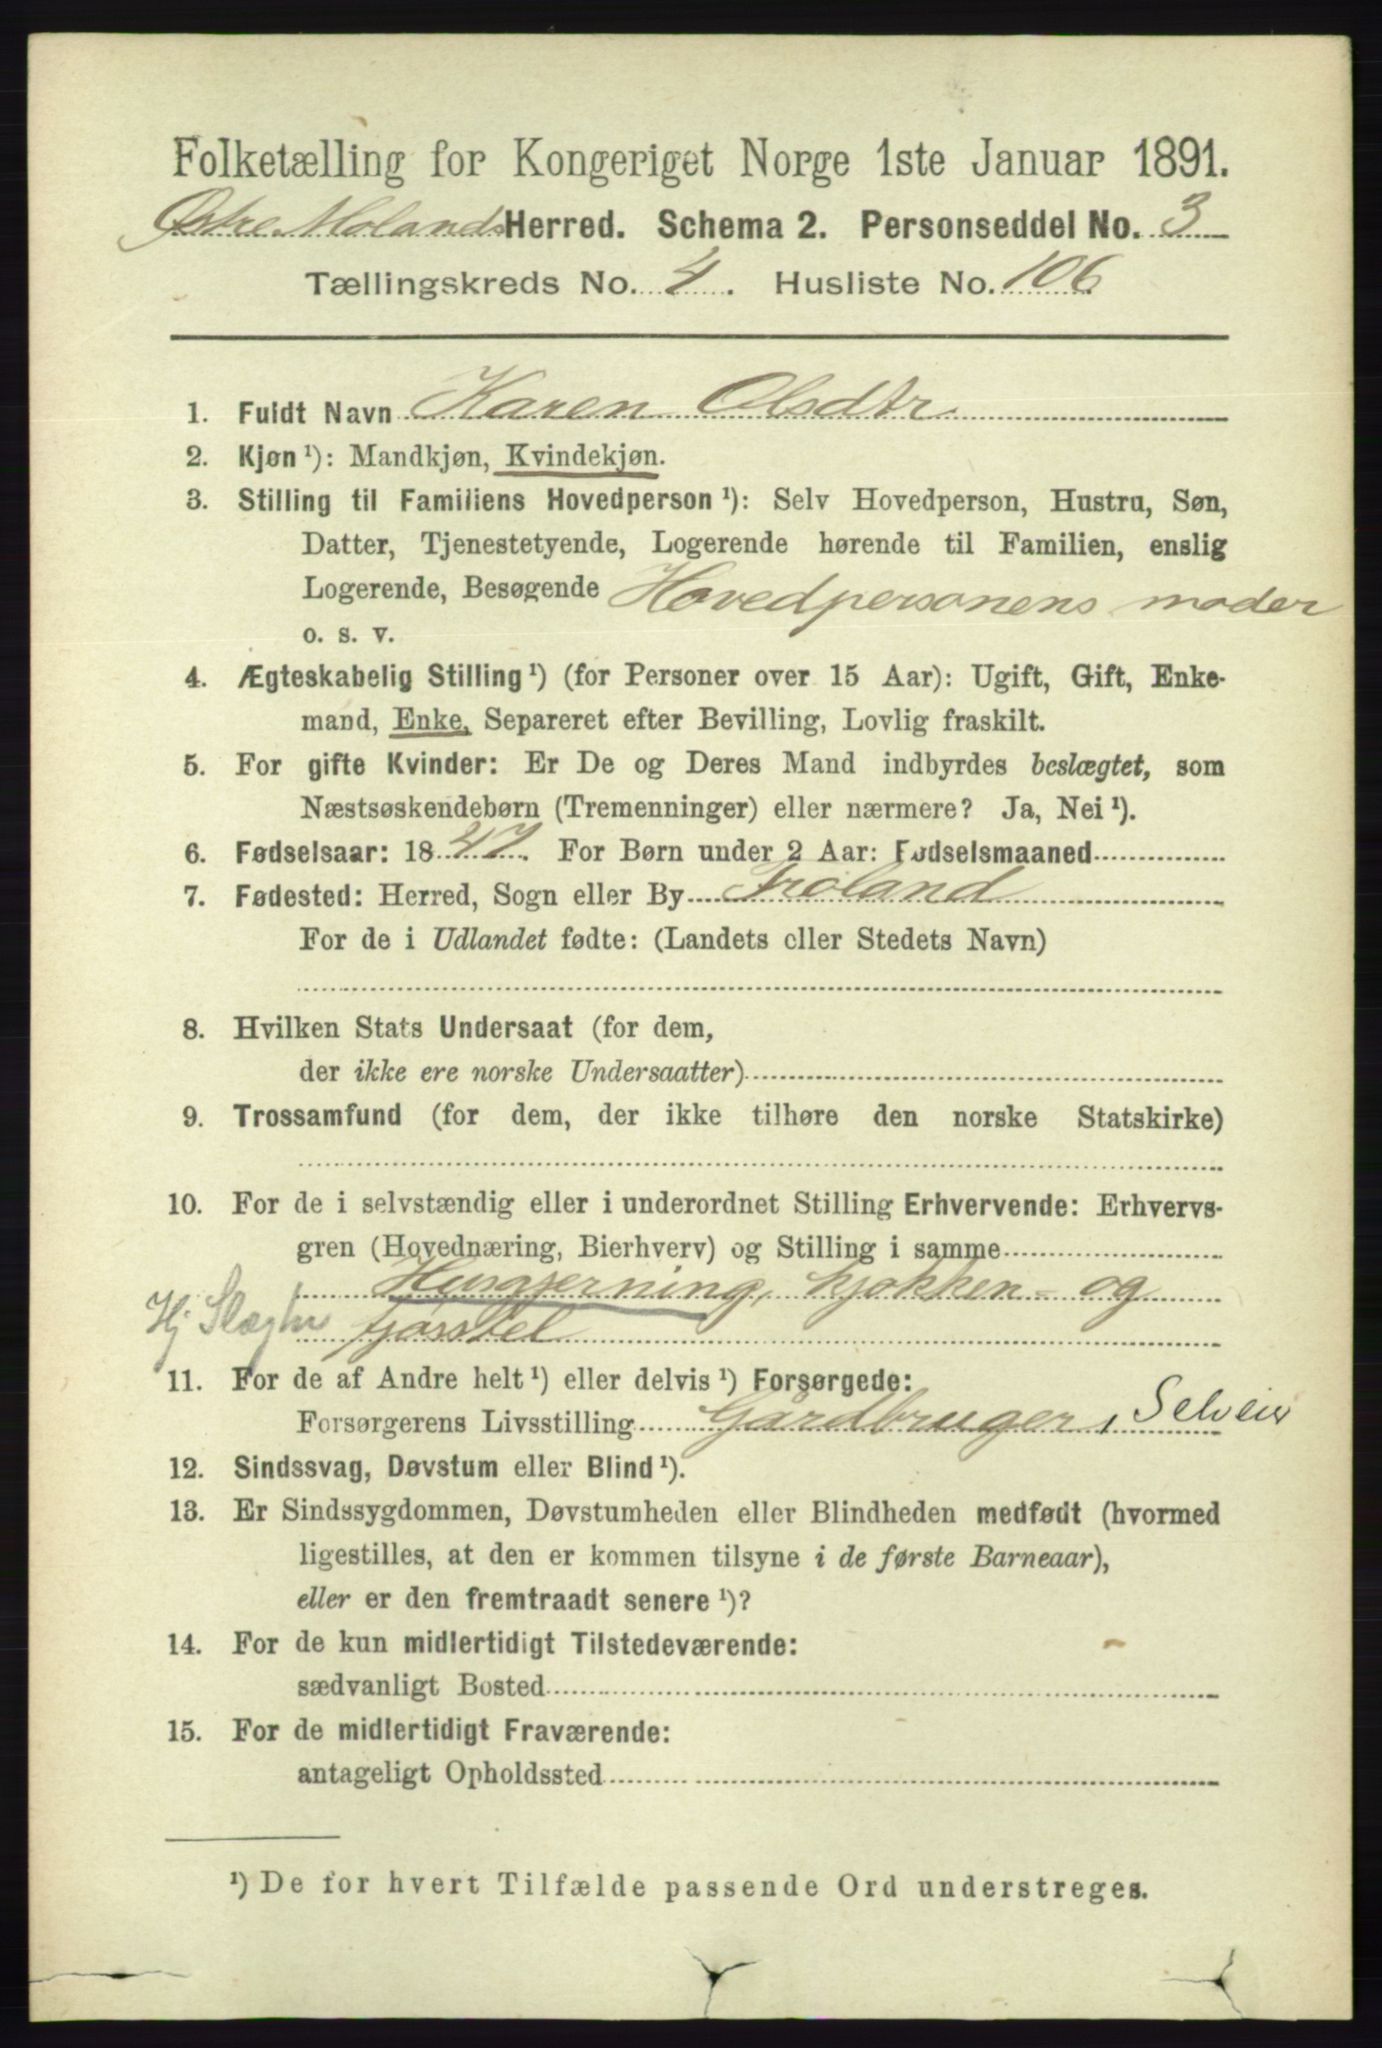 Folketælling for Kongeriget Norge 1ste Januar 1891.
Østre Molands Herred. Schema 2. Personseddel No. 3
Tællingskreds No. 4. Husliste No. 106
1. Fuldt Navn Karen Olsdtr
2. Kjøn ¹): Mandkjøn, Kvindekjøn.
3. Stilling til Familiens Hovedperson ¹): Selv Hovedperson, Hustru, Søn,
Datter, Tjenestetyende, Logerende hørende til Familien, enslig
Logerende, Besøgende Hovedpersonens moder
o. s. v.
4. Ægteskabelig Stilling ¹) (for Personer over 15 Aar): Ugift, Gift, Enke-
mand, Enke, Separeret efter Bevilling, Lovlig fraskilt.
5. For gifte Kvinder: Er De og Deres Mand indbyrdes beslægtet, som
Næstsøskendebørn (Tremenninger) eller nærmere? Ja, Nei ¹).
6. Fødselsaar: 1847. For Børn under 2 Aar: Fødselsmaaned
7. Fødested: Herred, Sogn eller By Froland
For de i Udlandet fødte: (Landets eller Stedets Navn)
8. Hvilken Stats Undersaat (for dem,
der ikke ere norske Undersaatter)
9. Trossamfund (for dem, der ikke tilhøre den norske Statskirke)
10. For de i selvstændig eller i underordnet Stilling Erhvervende: Erhvervs-
gren (Hovednæring, Bierhverv) og Stilling i samme
Husgjerning, kjøkken- og
Hj Slægtn fjøsstel
11. For de af Andre helt ¹) eller delvis ¹) Forsørgede:
Forsørgerens Livsstilling Gårdbruger, Selveier
12. Sindssvag, Døvstum eller Blind ¹).
13. Er Sindssygdommen, Døvstumheden eller Blindheden medfødt (hvormed
ligestilles, at den er kommen tilsyne i de første Barneaar),
eller er den fremtraadt senere ¹)?
14. For de kun midlertidigt Tilstedeværende:
sædvanligt Bosted
15. For de midlertidigt Fraværende:
antageligt Opholdssted
¹) De for hvert Tilfælde passende Ord understreges.